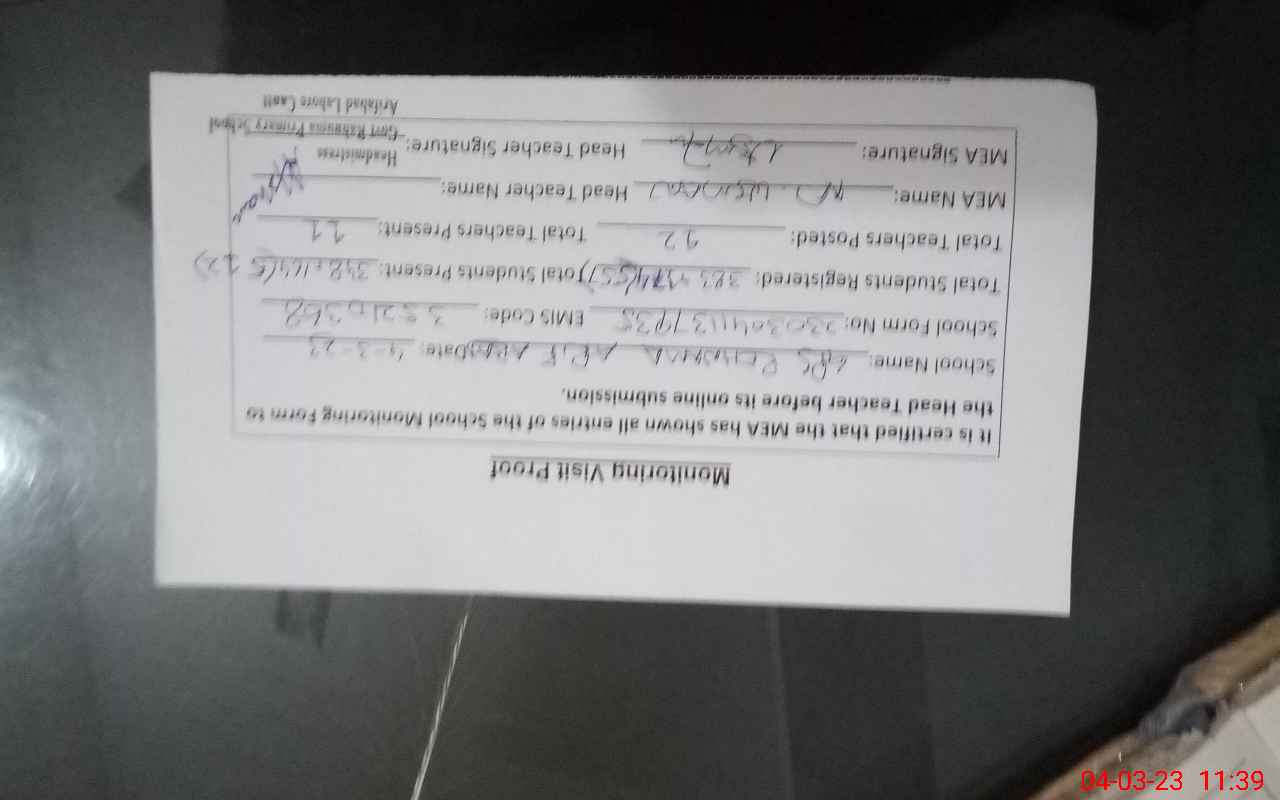 Monitoring Visit Proof
It is certified that the MEA has shown all entries of the School Monitoring Form to
the Head Teacher before its online submission.
School Name: GPS REHNUMA ARIF ABAD Date: 4-3-23
School Form No: EMIS Code: 35210368
Total Students Registered: 383 Total Students Present: 348
Total Teachers Posted: 12 Total Teachers Present: 11
MEA Name: M. Usman Head Teacher Name:
MEA Signature: Head Teacher Signature:
Headmistress
Govt Rahnuma Primary School
Arifabad Lahore Cantt
04-03-23 11:39